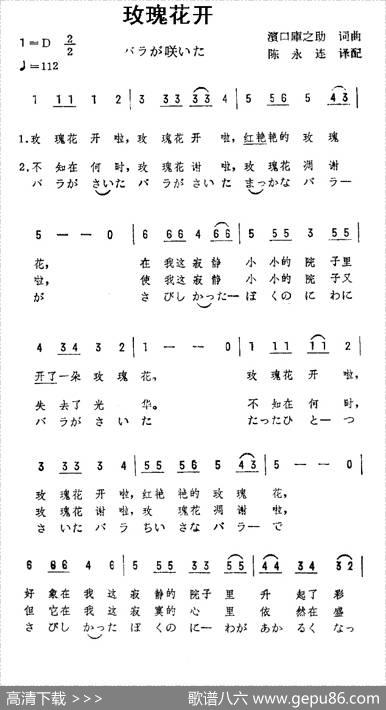 玫瑰花开
1=D 2/2
バラが咲いた
濱口庫之助 词曲
♩=112
陈永连 译配
1 11 1 2 | 3 33 33 4 | 5 56 5 43
1.玫瑰花开啦,玫瑰花开啦,红艳艳的玫瑰
2.不知在何时,玫瑰花谢啦,玫瑰花凋谢
バラが さいた バラがさいた まっかな バラー
5 — — 0 | 6 66 4 66 | 5 55 3 55
花, 在我这寂静 小小的院子里
啦, 使我这寂静 小小的院子又
が さびしかったーぼくのにわに
4 34 3 2 | 1 — — 0 | 1 11 11 2
开了一朵玫瑰花, 玫瑰花开啦,
失去了光华。 不知在何时,
バラがさいた たったひとーつ
3 33 3 4 | 55 56 5 43 | 5 — — 0
玫瑰花开啦,红艳艳的玫瑰花,
玫瑰花谢啦,玫瑰花凋谢啦,
さいたバラ ちいさなバラーで
6 66 4 6 | 55 55 33 55 | 44 34 32
好象在我这寂静的院子里升起了彩
但它在我这寂寞的心里依然在盛
さびしかったぼくのにーわがあかるくなっ
高清下载 >>>
歌谱八六 www.gepu86.com